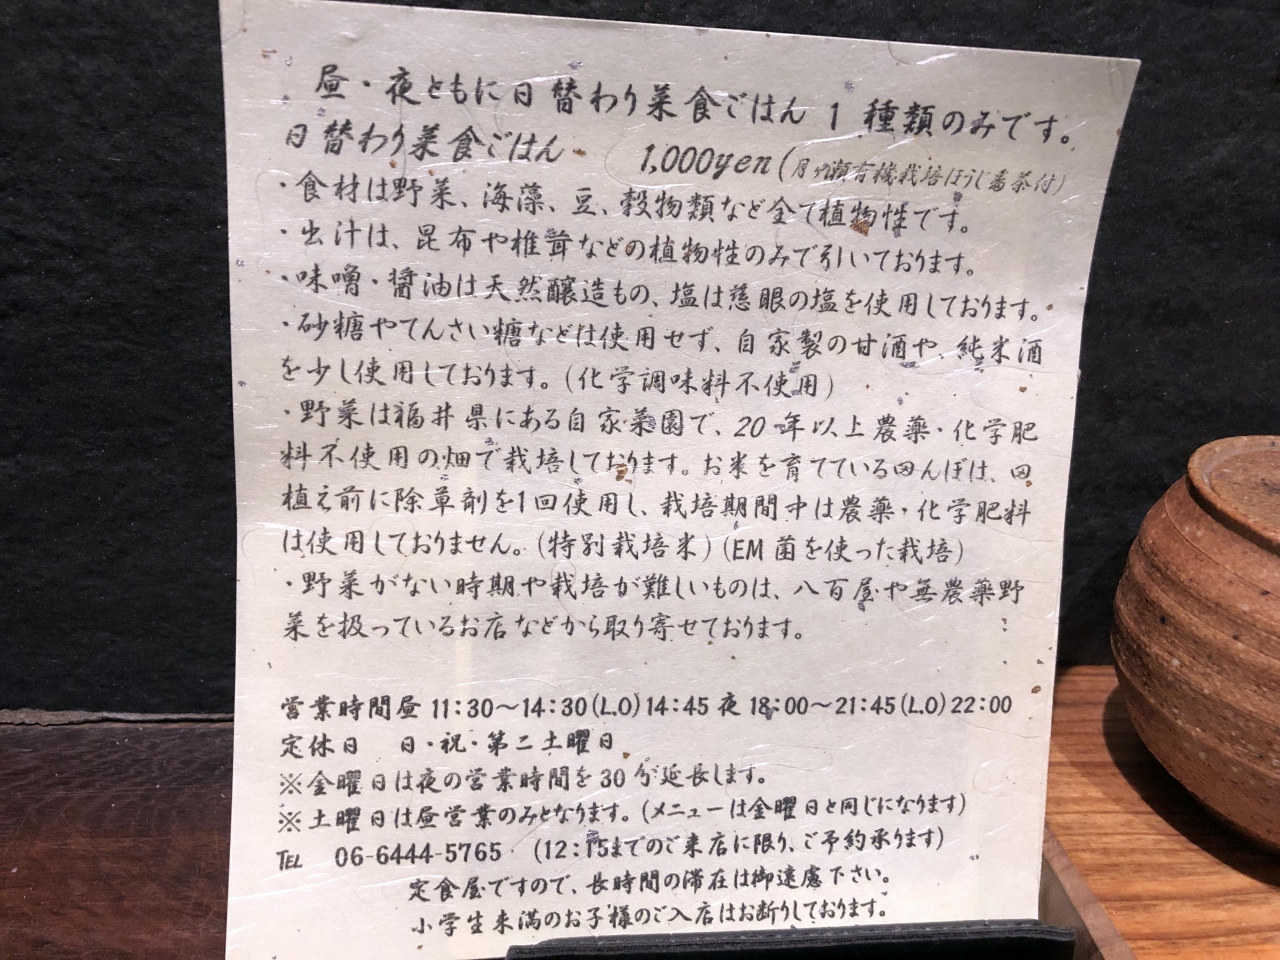 昼・夜ともに日替わり菜食ごはん 1 種類のみです。
日替わり菜食ごはん 1,000yen (月ヶ瀬有機栽培ほうじ番茶付)
・食材は野菜、海藻、豆、穀物類など全て植物性です。
・出汁は、昆布や椎茸などの植物性のみで引いております。
・味噌・醤油は天然醸造もの、塩は慈眼の塩を使用しております。
・砂糖やてんさい糖などは使用せず、自家製の甘酒や、純米酒
を少し使用しております。(化学調味料不使用)
・野菜は福井県にある自家菜園で、20年以上農薬・化学肥
料不使用の畑で栽培しております。お米を育てている田んぼは、田
植え前に除草剤を1回使用し、栽培期間中は農薬・化学肥料
は使用しておりません。(特別栽培米)(EM菌を使った栽培)
・野菜がない時期や栽培が難しいものは、八百屋や無農薬野
菜を扱っているお店などから取り寄せております。
営業時間昼 11:30～14:30(L.O)14:45 夜 18:00～21:45(L.O)22:00
定休日 日・祝・第二土曜日
※金曜日は夜の営業時間を30分延長します。
※土曜日は昼営業のみとなります。(メニューは金曜日と同じになります)
TEL 06-6444-5765 (12:15までのご来店に限り、ご予約承ります)
定食屋ですので、長時間の滞在は御遠慮下さい。
小学生未満のお子様のご入店はお断りしております。